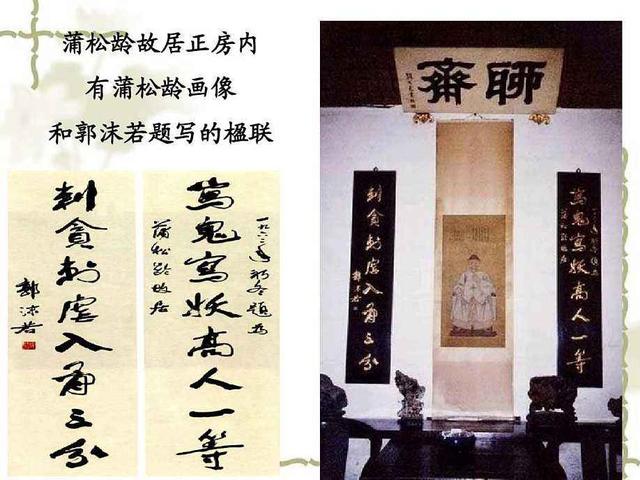 蒲松龄故居正房内
有蒲松龄画像
和郭沫若题写的楹联
一九六二年初冬題为
寫鬼寫妖高人一等
蒲松龄故居
刺貪刺虐入骨三分
郭沫若
聊齋
寫鬼寫妖高人一等
蒲松龄故居
刺貪刺虐入骨三分
郭沫若